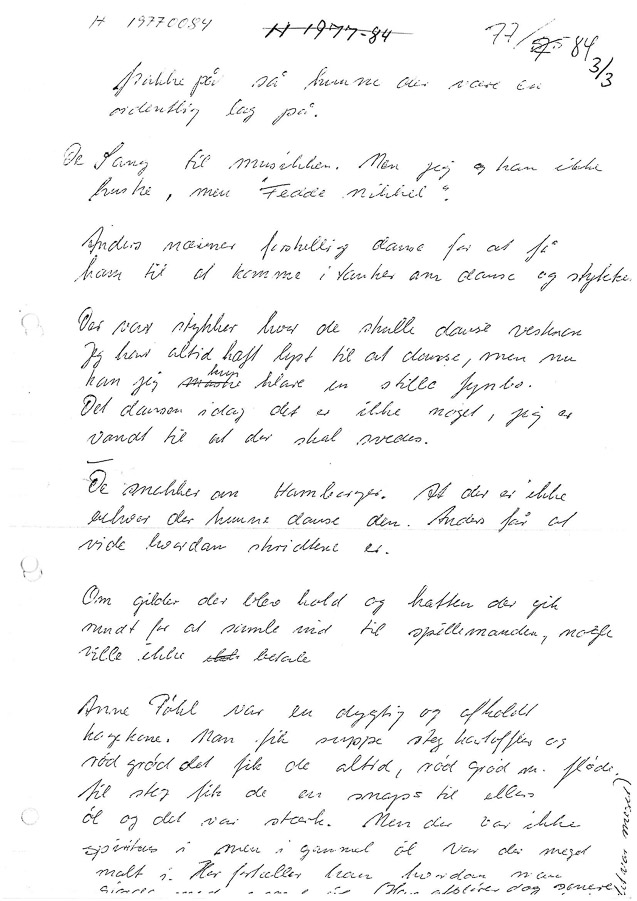 H 19770084 H 1977-84 77/ 84 3/3
på så kunne der være en
ordentlig lag på.
De Sang til musikken. Men jeg kan ikke
huske, men "Fedde nikkel".
Anders nævner forskellig danse for at få
ham til at komme i tanker om danse og stykke
Der var stykker hvor de skulle danse
Jeg har altid haft lyst til at danse, men nu
kan jeg kun klare en stille
Det dansen idag det er ikke noget, jeg er
vandt til at der skal svedes.
De snakker om Hamborger. At der er ikke
enhver der kunne danse den. Anders får at
vide hvordan skridtene er.
Om gilder der blev hold og hatten der gik
rundt for at samle ind til spillemanden, nogle
ville ikke betale
Anne Pöhl var en dygtig og afholdt
kogekone. Man fik suppe steg kartofler og
rød grød det fik de altid, rød grød m. fløde.
til steg fik de en snaps til ellers
öl og det var stærk. Men der var ikke
spiritus i men i gammel öl var der meget
malt i. Her fortæller han hvordan man